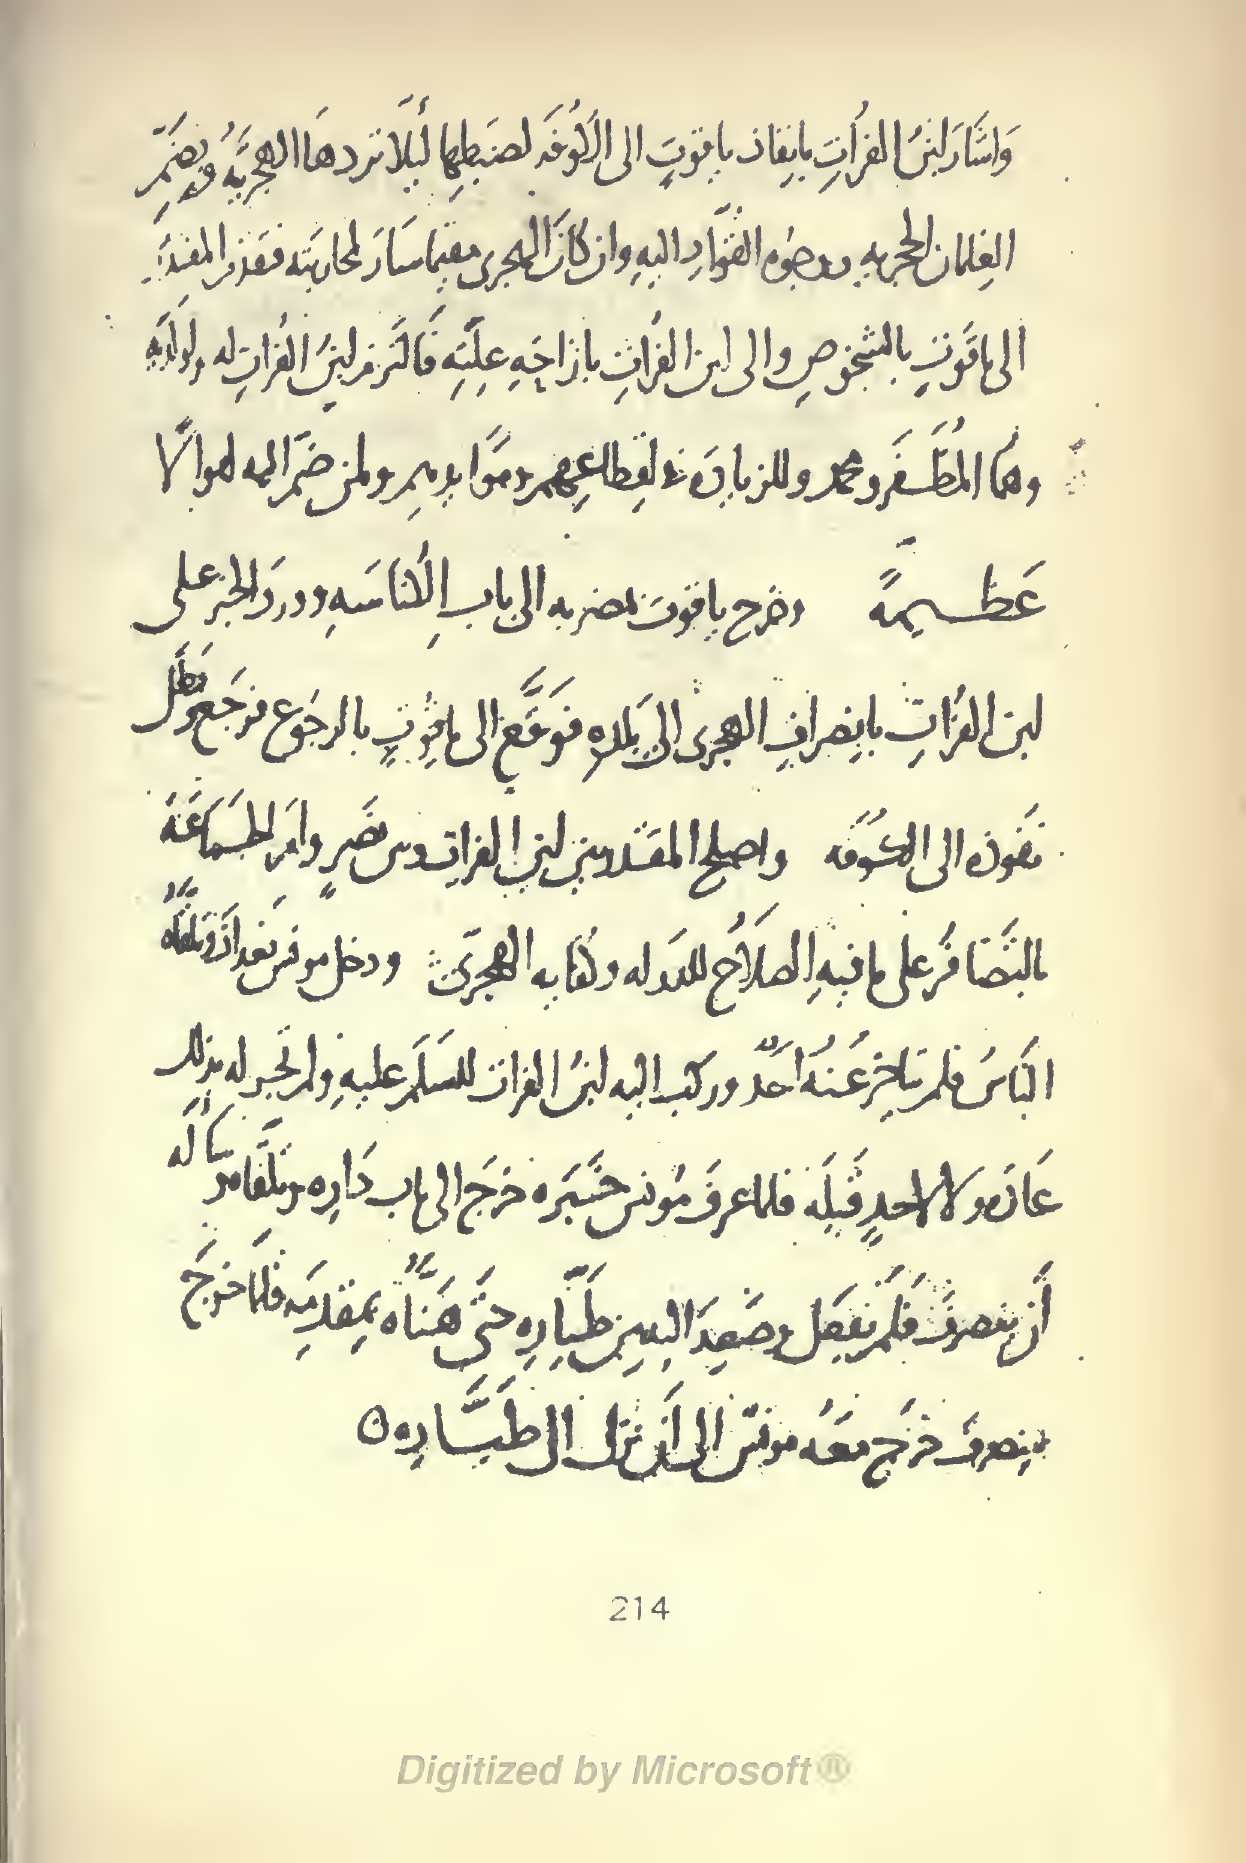 وَاشَارَ ابنُ الفُرَاتِ بانِفاذ ياقوتَ الى الكُوفَه لضَبطِها لئِلّا تردها الهجريَّهُ ويضمّ
الغِلمان الحجريه ووجوه القوّاد اليهِ وان كانَ الهجرى مقيما سَارَ لمحاربَتِه فتقدم المقتدر
الى ياقوتٍ بالشخوصِ والى ابن الفُراتِ بازاحَةِ علّتِه فالتَزم ابنُ الفُراتِ له ولولَدَيهِ
وهُما المُظَفَّر ومحمد وللزيادة في اقطاعِهم وموايدهم ولمن ضمّ اليه اموالًا
عَظيمةً وخرج ياقوتَ بمضربه الى بابِ الكُناسَهِ وورَدَ الخبر على
ابن الفُراتِ بانِصرافِ الهجرى الى بَلدهِ فوَقَّع الى ياقوتٍ بالرجُوع فرَجَع وبَطَل
نفوذه الى الكُوفَه واصلح المقتدر بين ابنِ الفراتِ وبين نَصرٍ وامَر الجَماعَةَ
بالتَضافُر على ما فيهِ الصَلاحُ للدَوله وكفايه الهجريّ ودخل مونس بغداذ وتلقّاه
الناسُ فلم يتاخر عَنهُ احَدٌ وركب اليه ابنُ الفرات للسَلم عليهِ ولم تَجر له بذلك
عَادَه ولا لاحدٍ قَبلَه فلما عرفَ مُونس خَبَرَه خرَج الى باب دَارِه وتلَقّاه وسَأله
أن ينصرفَ فلَم يَفعَل وصَعِدَ اليه من طيّارِه حَتّى هَنّاه بمِقدمِه فلمّا خرَجَ
لينصرفَ خرَج مَعَه مونس الى أن نزل الى طيّارِه ٥
214
Digitized by Microsoft®